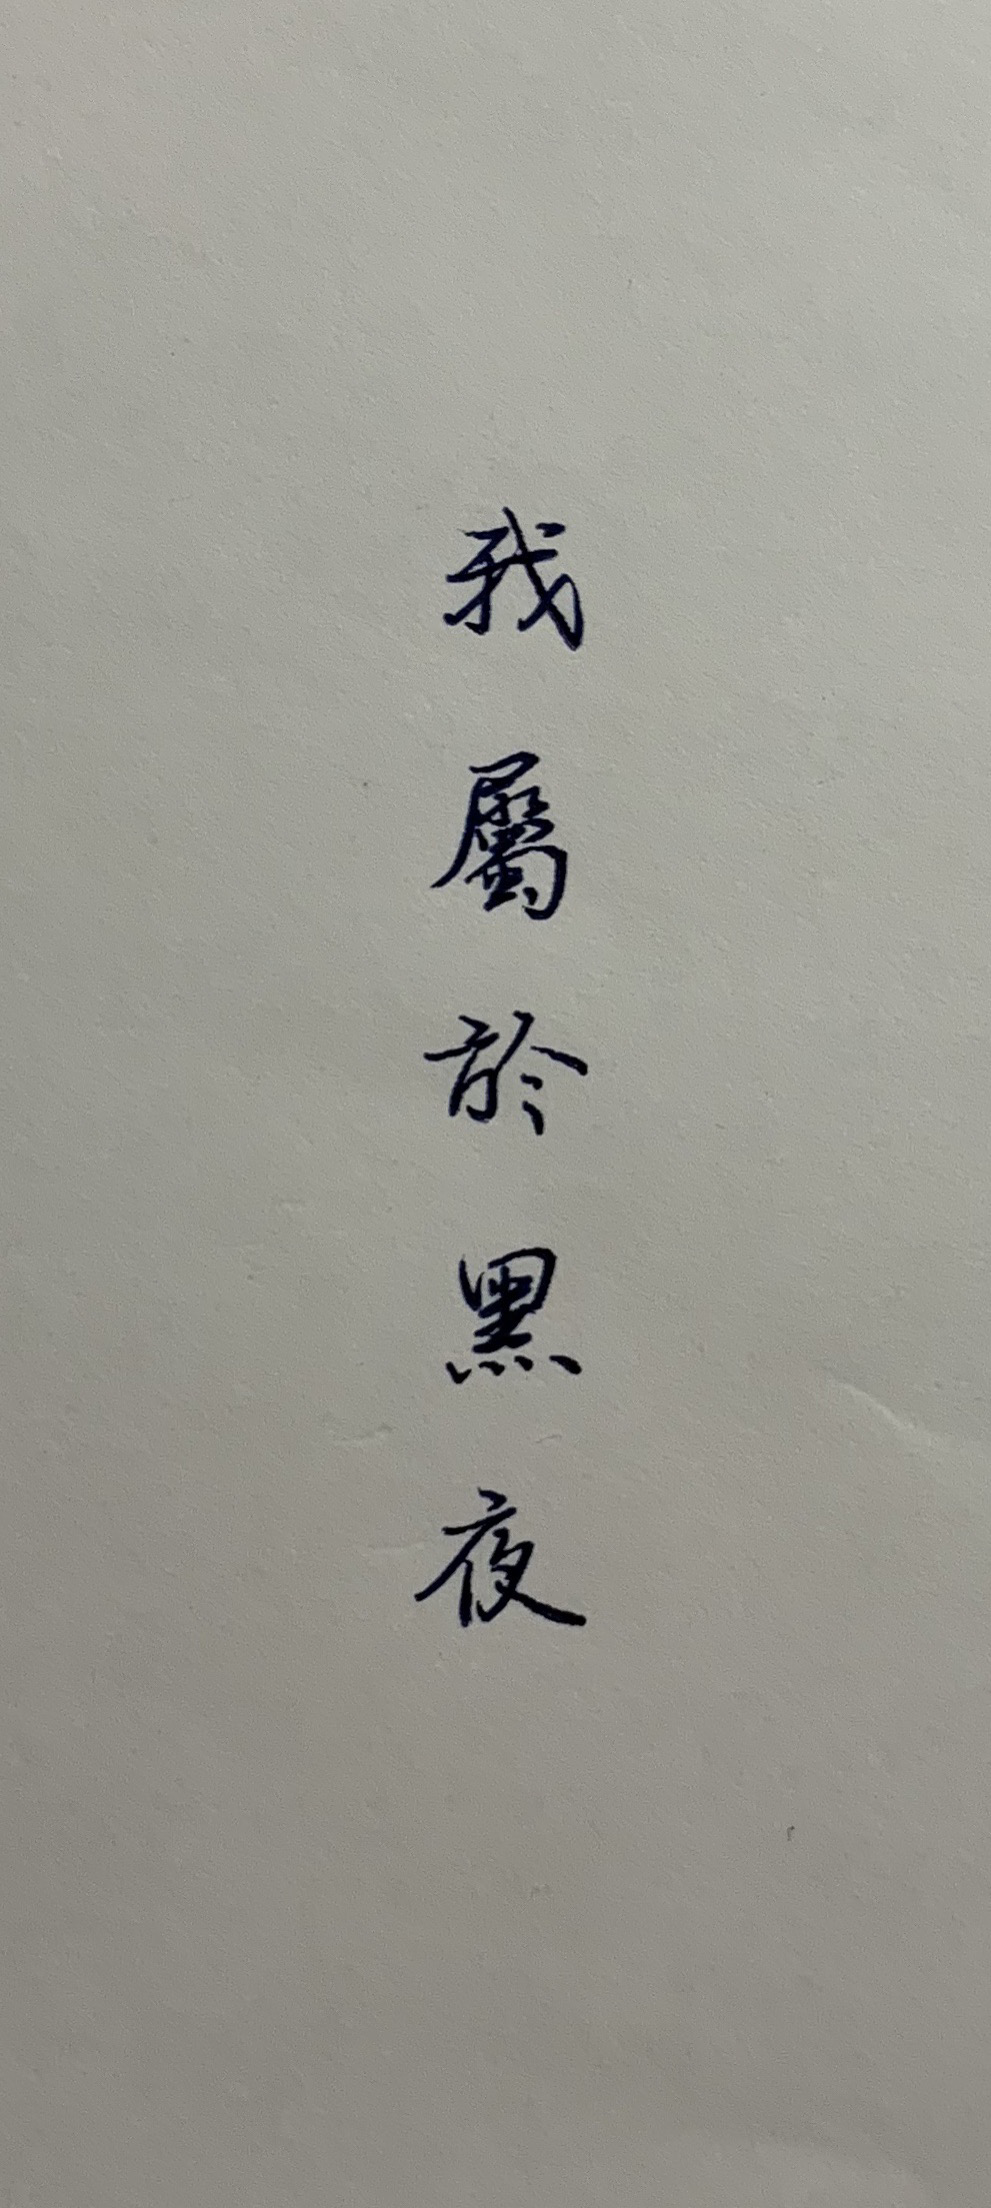 我屬於黑夜